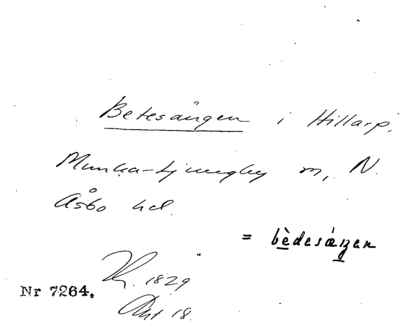 Betesängen i Hillarp,
Munka-Ljungby sn, N.
Åsbo hd.
= bèdesæŋen
1829
Nr 7264.
Akt 18.